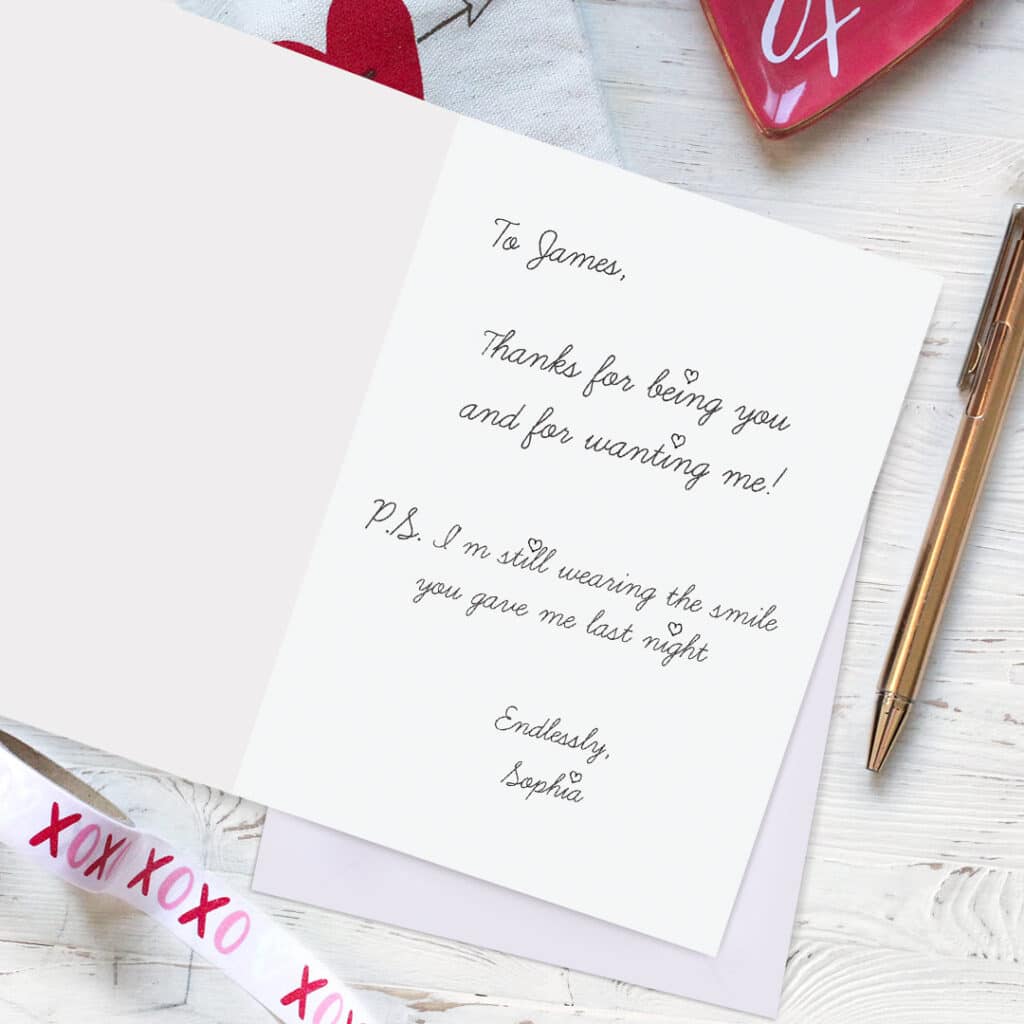 OX
To James,
Thanks for being you
and for wanting me!
P.S. I'm still wearing the smile
you gave me last night
Endlessly,
Sophia
XOXO
XOXO
XOX